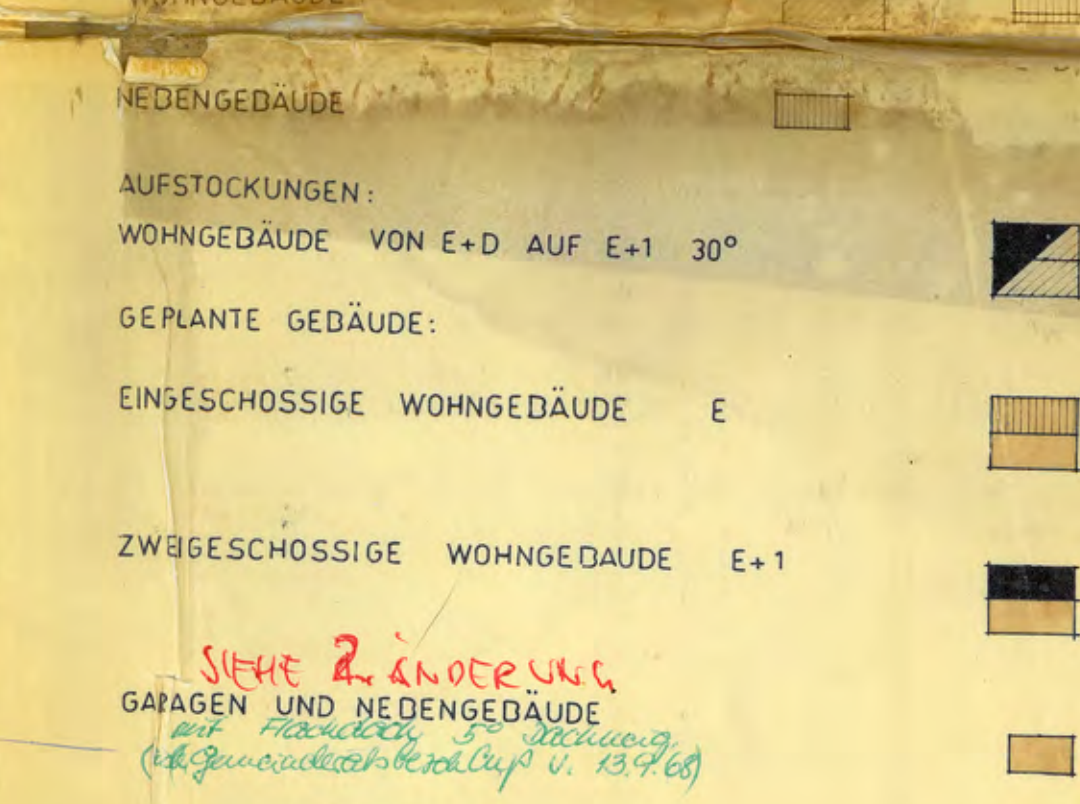 WOHNGEBÄUDE
NEBENGEBÄUDE
AUFSTOCKUNGEN:
WOHNGEBÄUDE VON E+D AUF E+1 30°
GEPLANTE GEBÄUDE:
EINGESCHOSSIGE WOHNGEBÄUDE E
ZWEIGESCHOSSIGE WOHNGEBAUDE E+1
SIEHE 2. ÄNDERUNG
GARAGEN UND NEBENGEBÄUDE
mit Flachdach 5° Dachneig.
Gemeinderatsbeschluß v. 13.9.68)